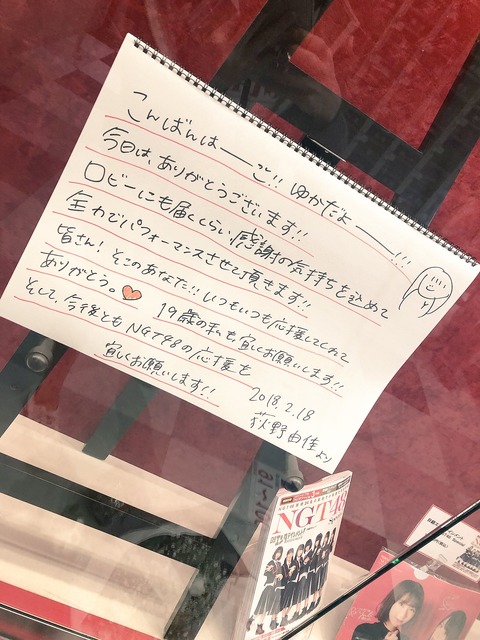 こんばんはーーーご!! ゆかだよーーー!!!
今日は、ありがとうございます!!
ロビーにも届くくらい感謝の気持ちを込めて
全力でパフォーマンスさせて頂きます!!
皆さん! そこのあなた!! いつもいつも応援してくれて
ありがとう。 19歳の私も、宜しくお願いします!!
そして、今後とも NGT48の応援を
宜しくお願いします!!
2018.2.18
荻野由佳より
NGT48